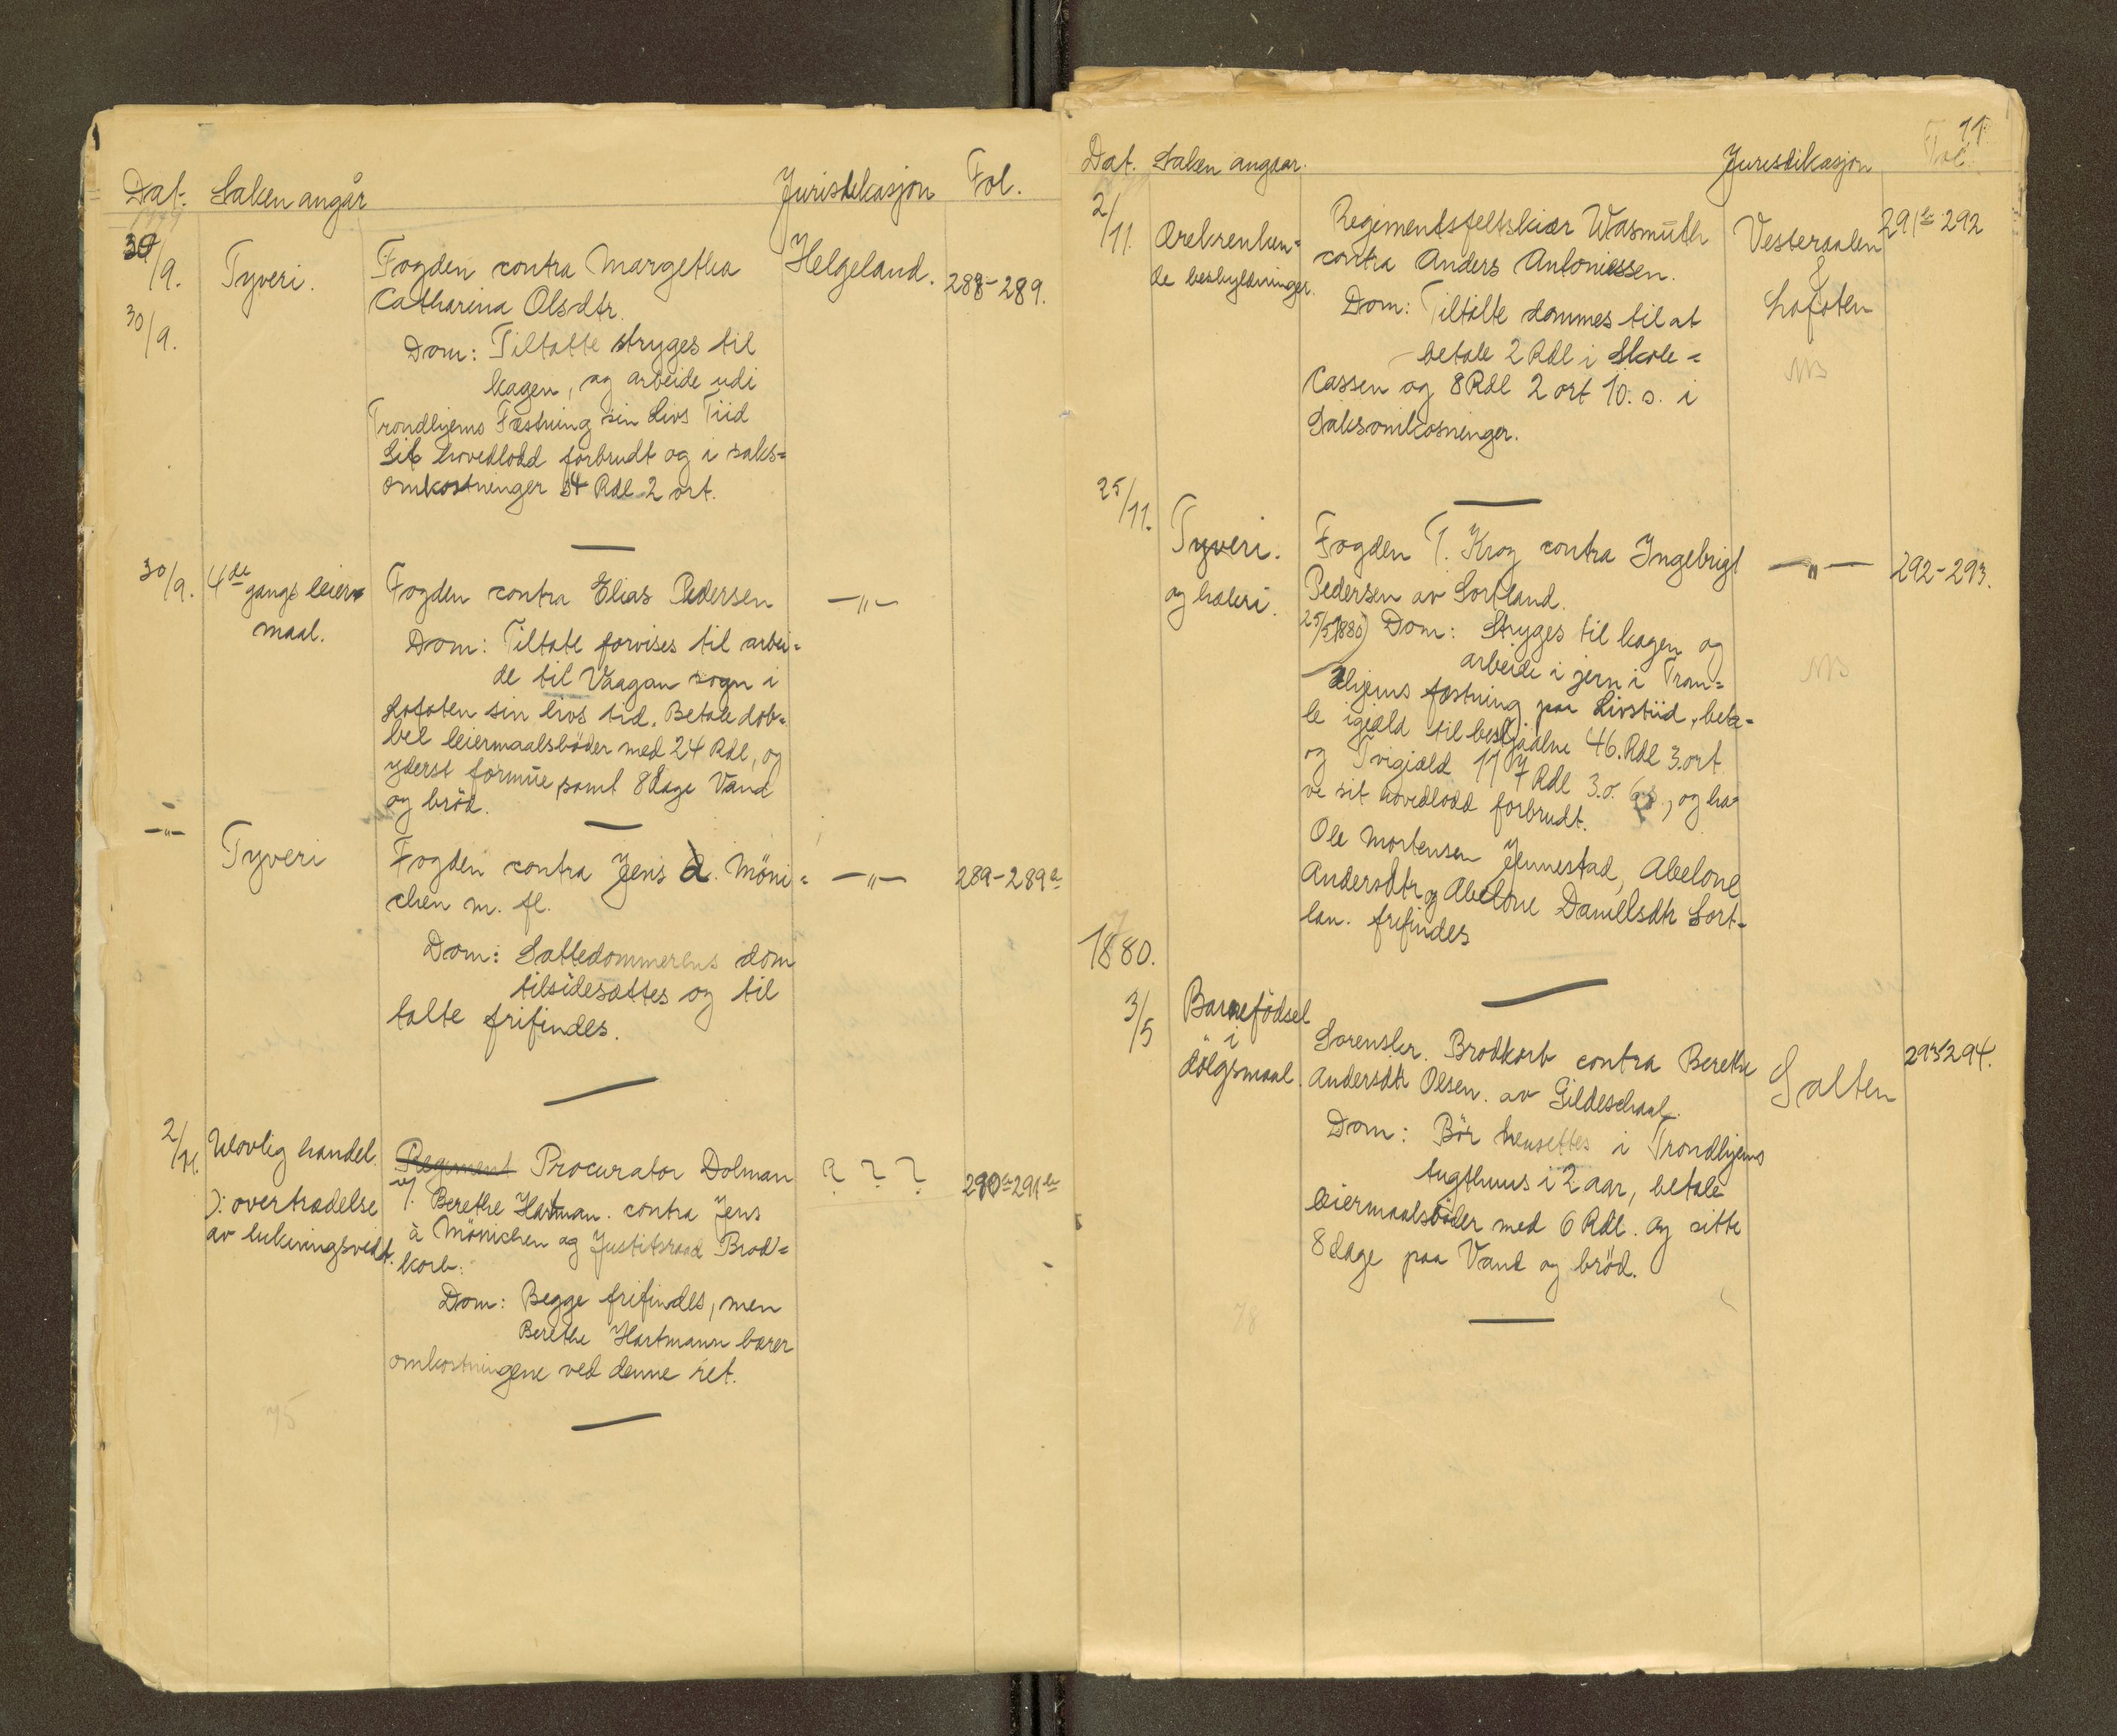 Dat. Saken angår Juristikasjon Fol.
30/9. Tyveri. Fogden contra Margetha Helgeland. 288-289.
Catharina Olsdtr.
30/9.
Dom: Tiltalte stryges til
kagen, og arbeide udi
Trondhjems Fæstning sin Livs Tiid
Sit hovedlodd forbrudt og i saks=
omkostninger 54 Rdl 2 ort.
30/9. 4de gangs leier= Fogden contra Elias Pedersen —"—
maal.
Dom: Tiltalt forvises til arbei=
de til Vaagan sogn i
Lofoten sin livs tid. Betale dob=
bel leiermaalsböder med 24 Rdl, og
yderst formue, samt 8 dage Vand
og bröd.
—"— Tyveri Fogden contra Jens á. Möni= —"— 289-289a
chen m. fl.
Dom: Sættedommerens dom
tilsidesættes og til
talte frifindes.
2/11. Ulovlig handel. Regiment Procurator Dolman ? ? ? 290a-291a
): overtrædelse f. Berethe Hartman. contra Jens
av lukningsvedt. à Mönichen og Justitsraad Brod=
korb.
Dom: Begge frifindes, men
Berethe Hartmann bærer
omkostningene ved denne ret.
75
11.
Dat. Saken angaar. Juristikasjon Fol.
2/11. Ærekrenken= Regimentsfeltskiær Wasmuth Vesteraalen 291a-292
de beskyldninger. contra Anders Antoniessen. &
Lofoten
Dom: Tiltalte dømmes til at
betale 2 Rdl i Skole=
Cassen og 8 Rdl 2 ort 10. s. i
Saksomkosninger.
NB
25/11. Tyveri. Fogden T. Krog contra Ingebrigt —"— 292-293.
og hæleri. Pedersen av Sortland.
25/5 1880) Dom: Stryges til kagen og
arbeide i jern i Tron=
dhjems fæstning paa Livstiid, beta=
le igiæld til bestjaalne 46. Rdl 3. ort
og Tvigiæld 117 Rdl 3. o. 6 s., og ha=
ve sit hovedlodd forbrudt.
NB
Ole Mortensen Jennestad, Abelone
Andersdtr og Abelone Daniellsdtr Sort=
lan. frifindes
1880.
3/5 Barnefödsel
i
dölgsmaal. Sorenskr. Brodkorb contra Berethe Salten 293-294.
Andersdtr Olsen. av Gildeschaal.
Dom: Bör hensettes i Trondhjems
tugthuus i 2 aar, betale
leiermaalsböder med 6 Rdl. og sitte
8 dage paa Vand og bröd.
78